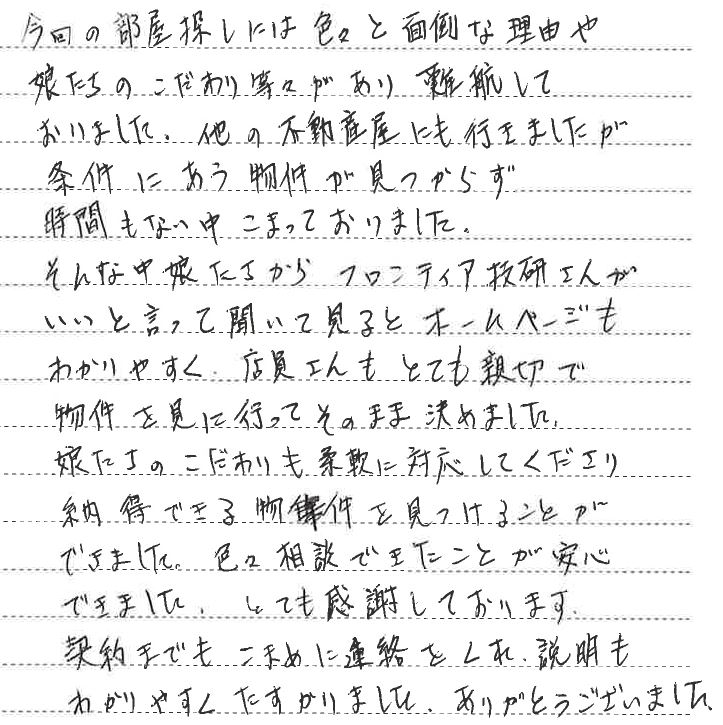 今回の部屋探しには色々と面倒な理由や
娘たちのこだわり等々があり難航して
おりました。他の不動産屋にも行きましたが
条件にあう物件が見つからず
時間もない中こまっておりました。
そんな中娘たちからフロンティア技研さんが
いいと言って聞いて見るとホームページも
わかりやすく、店員さんもとても親切で
物件を見に行ってそのまま決めました。
娘たちのこだわりも柔軟に対応してくださり
納得できる物件を見つけることが
できました。色々相談できたことが安心
できました。とても感謝しております。
契約までもこまめに連絡をくれ、説明も
わかりやすくたすかりました。ありがとうございました。